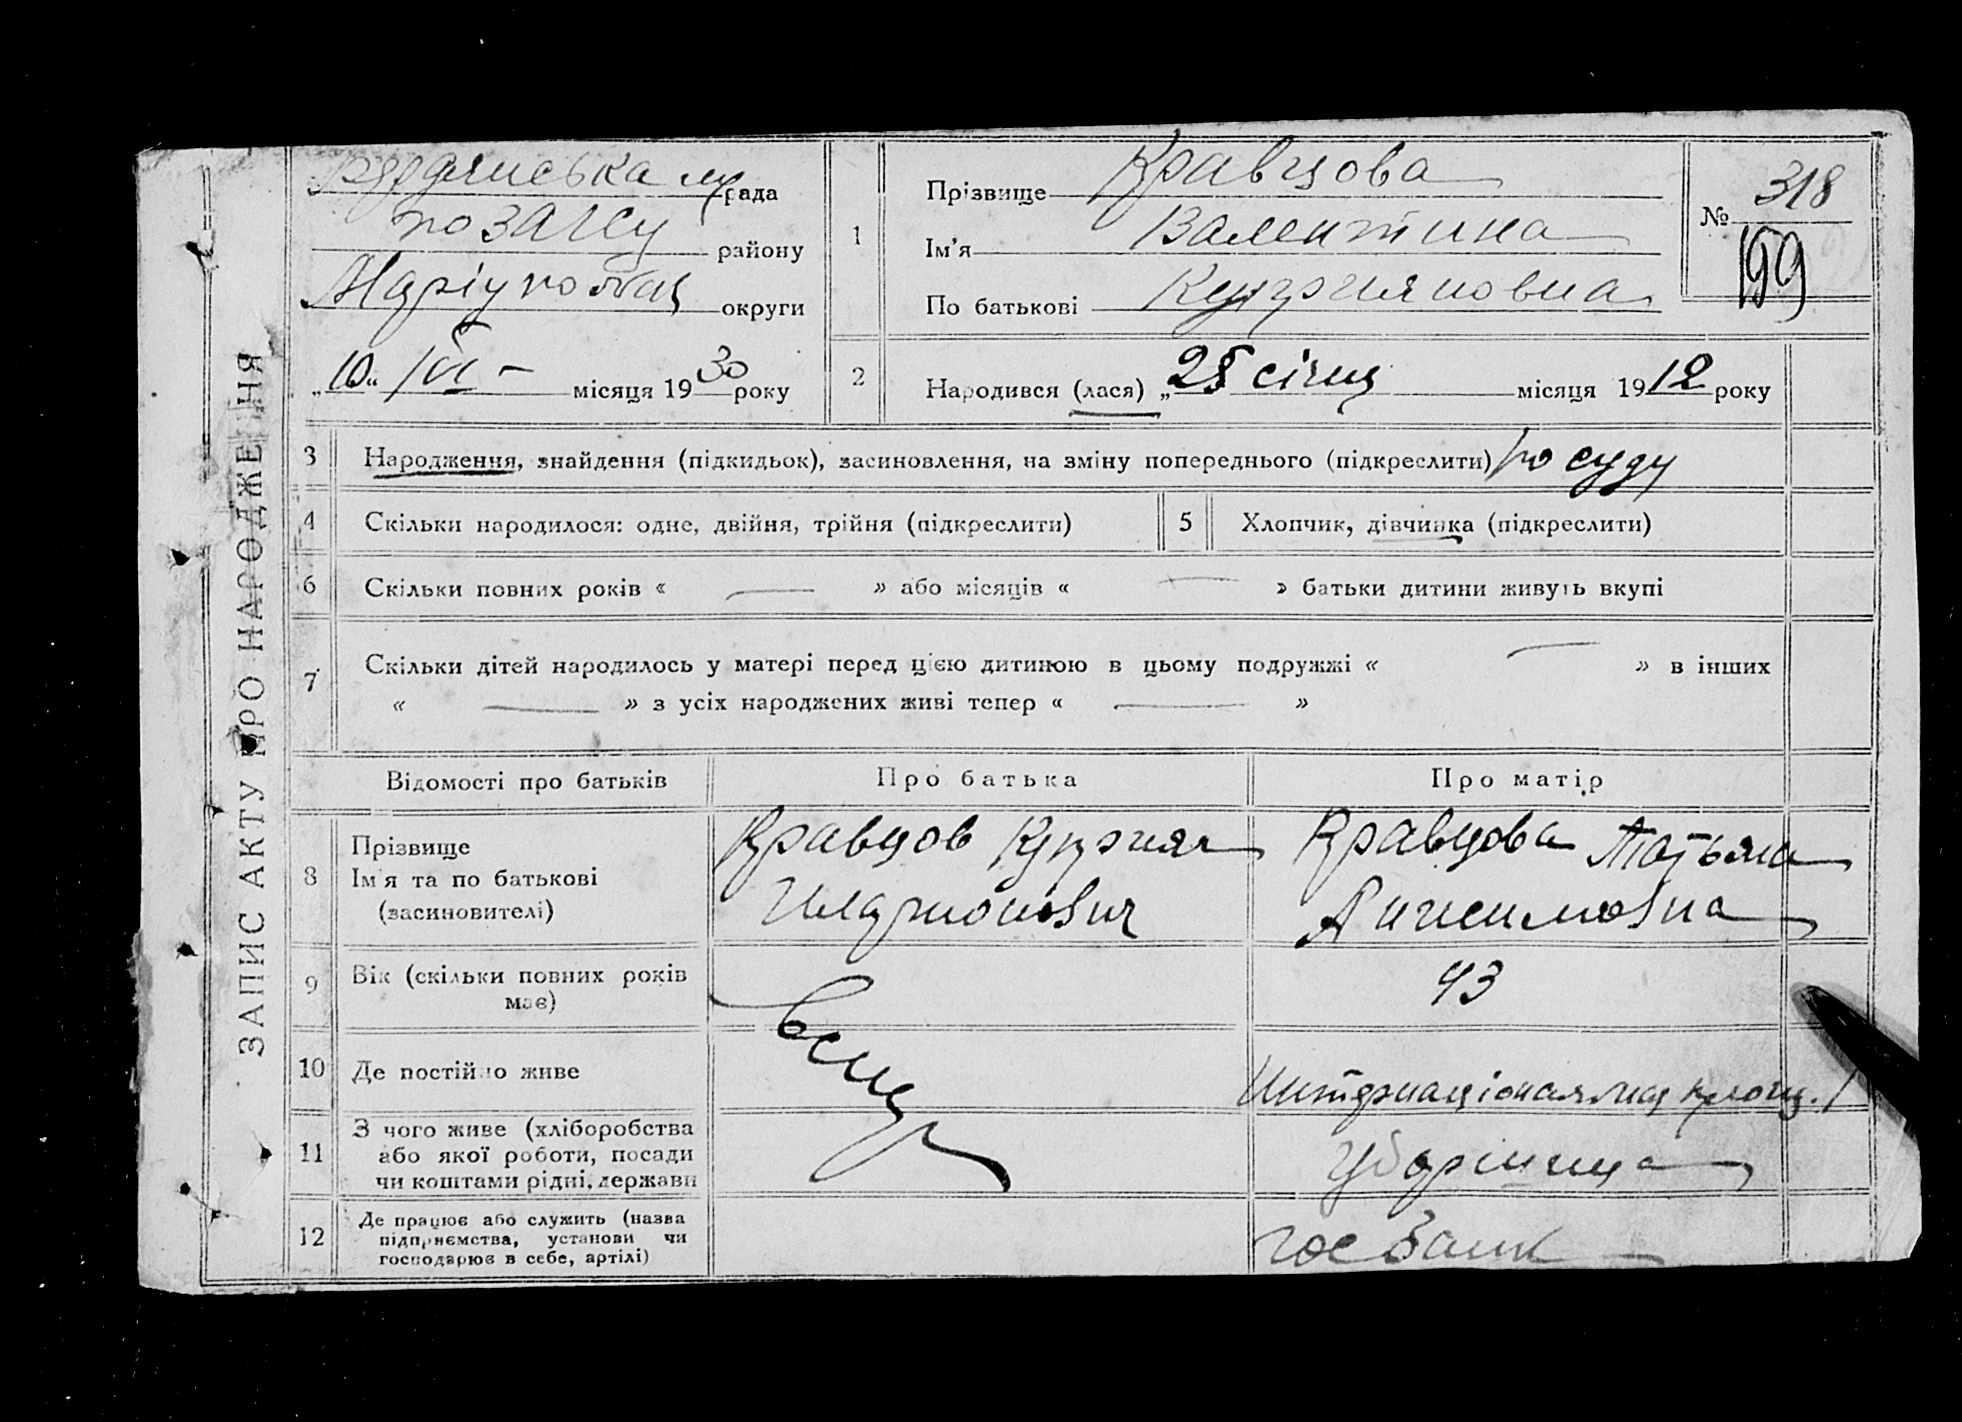 ЗАПИС АКТУ ПРО НАРОДЖЕННЯ
Бердянська м рада
по ЗАГСу району
Маріупольськ округи
„10" VI - місяця 1930 року
1
Прізвище Кравцова
Ім'я Валентина
По батькові Куприяновна
№ 318
199
2
Народився (лася) „28 січня місяця 1912 року
3
Народження, знайдення (підкидьок), засиновлення, на зміну попереднього (підкреслити) по суду
4
Скільки народилося: одне, двійня, трійня (підкреслити)
5
Хлопчик, дівчинка (підкреслити)
6
Скільки повних років « — » або місяців « — » батьки дитини живуть вкупі
7
Скільки дітей народилось у матері перед цією дитиною в цьому подружжі « — » в інших
« — » з усіх народжених живі тепер « — »
Відомості про батьків
Про батька
Про матір
8
Прізвище
Ім'я та по батькові
(засиновителі)
Кравцов Куприян
Иларионович
Кравцова Татьяна
Анисимовна
9
Вік (скільки повних років
має)
43
10
Де постійно живе
Интернаціональна площ. 1
11
З чого живе (хліборобства
або якої роботи, посади
чи коштами рідні, держави
Уборщица
12
Де працює або служить (назва
підприємства, установи чи
господарює в себе, артілі)
Гос Банк